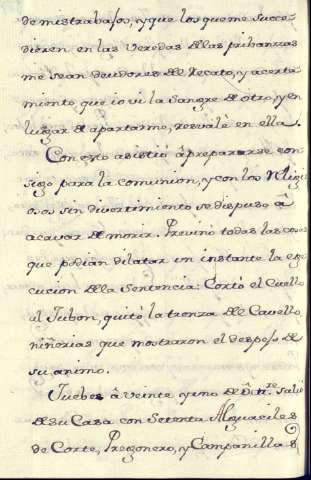 de mis trabajos, y que los que me succe-
dieren en las Veredas de las pribanzas
me sean deudores del Recato, y acerta
miento, que io vi la Sangre de otro, y en
lugar de apartarme, resvalè en ella.
Con esto asistiò à prepararse con
sigo para la comunion, y con los Religi
osos sin divertimiento se dispuso à
acavar de morir. Previno todas las cosas
que podian dilatar un instante la ege
cucion de la Sentencia: Cortò el Cuello
al Jubon, quitò la trenza del Cavello,
niñerias que mostraron el despejo de
su animo.
Juebes à veinte y uno de salio
de su Casa con Setenta Alguaciles
de Corte, Pregonero, y Campanilla